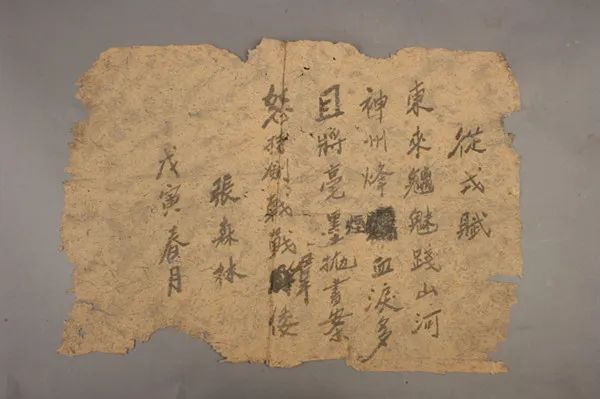 從戎賦
東來魑魅踐山河
神州烽煙血淚多
且將毫墨拋書案
持劍戟戰羣倭
張森林
戊寅春月